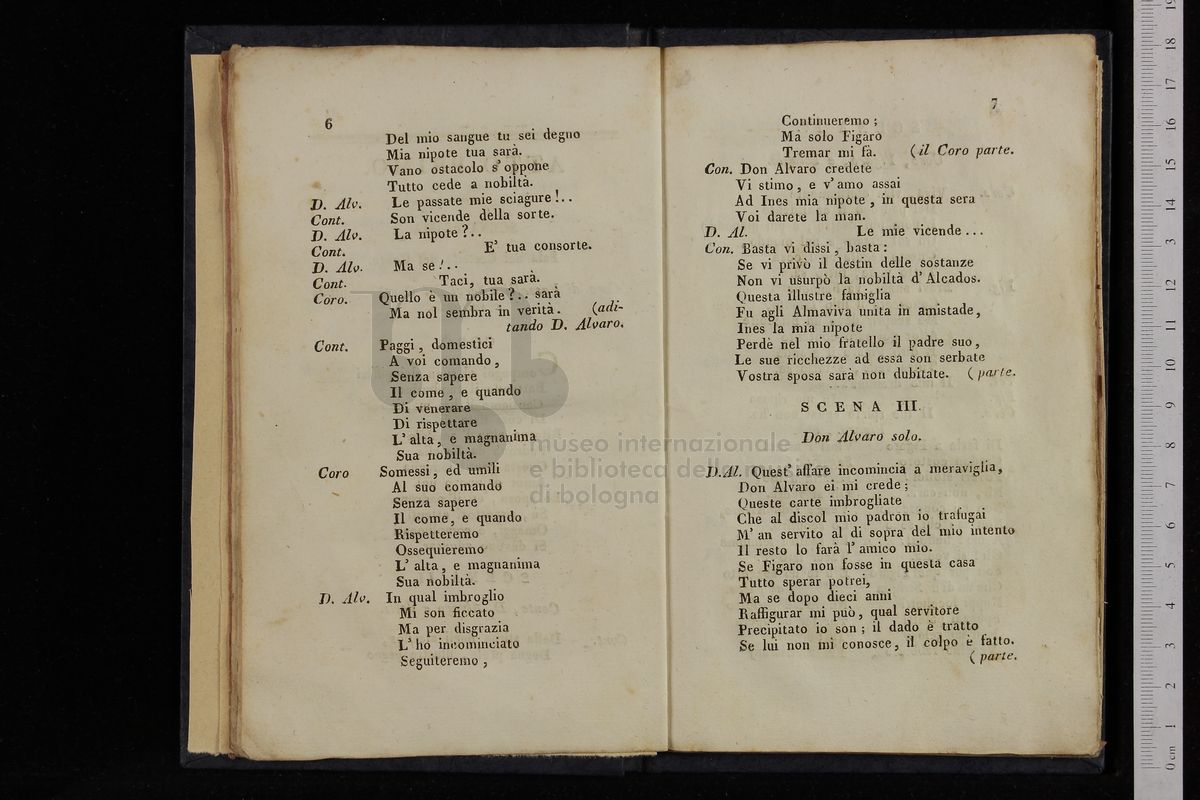 6
Del mio sangue tu sei degno
Mia nipote tua sarà.
Vano ostacolo s' oppone
Tutto cede a nobiltà.
D. Alv. Le passate mie sciagure!..
Cont. Son vicende della sorte.
D. Alv. La nipote?..
Cont. E' tua consorte.
D. Alv. Ma se!..
Cont. Taci, tua sarà.
Coro. Quello è un nobile?.. sarà
Ma nol sembra in verità. (adi-
tando D. Alvaro.
Cont. Paggi, domestici
A voi comando,
Senza sapere
Il come, e quando
Di venerare
Di rispettare
L' alta, e magnanima
Sua nobiltà.
Coro Somessi, ed umili
Al suo comando
Senza sapere
Il come, e quando
Rispetteremo
Ossequieremo
L' alta, e magnanima
Sua nobiltà.
D. Alv. In qual imbroglio
Mi son ficcato
Ma per disgrazia
L' ho incominciato
Seguiteremo,
7
Continueremo;
Ma solo Figaro
Tremar mi fà. (il Coro parte.
Con. Don Alvaro credete
Vi stimo, e v' amo assai
Ad Ines mia nipote, in questa sera
Voi darete la man.
D. Al. Le mie vicende...
Con. Basta vi dissi, basta:
Se vi privò il destin delle sostanze
Non vi usurpò la nobiltà d' Alcados.
Questa illustre famiglia
Fu agli Almaviva unita in amistade,
Ines la mia nipote
Perdè nel mio fratello il padre suo,
Le sue ricchezze ad essa son serbate
Vostra sposa sarà non dubitate. (parte.
SCENA III.
Don Alvaro solo.
D.Al. Quest' affare incomincia a meraviglia,
Don Alvaro ei mi crede;
Queste carte imbrogliate
Che al discol mio padron io trafugai
M' an servito al di sopra del mio intento
Il resto lo farà l' amico mio.
Se Figaro non fosse in questa casa
Tutto sperar potrei,
Ma se dopo dieci anni
Raffigurar mi può, qual servitore
Precipitato io son; il dado è tratto
Se lui non mi conosce, il colpo è fatto.
(parte.
museo internazionale
e biblioteca della
di bologna
0 cm 1 2 3 4 5 6 7 8 9 10 11 12 13 14 15 16 17 18 19